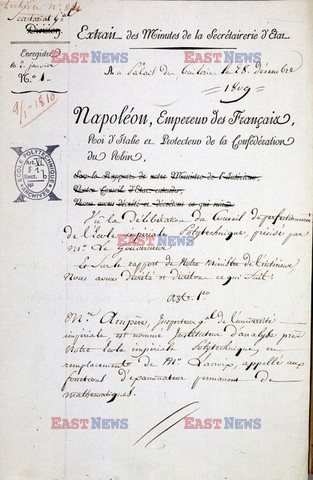 Extrait des Minutes de la Secrétairerie d'Etat.
Enregistré
le 2. janvier
N.° 1
Au Palais des Tuileries le 28 décembre
1809
9/1-1810
Napoléon, Empereur des Français,
Roi d'Italie et Protecteur de la Confédération
du Rhin,
Sur le Rapport de notre Ministre de l'Intérieur
Notre Conseil d'Etat entendu,
Nous avons décrété et décrétons ce qui suit
Vu la délibération du Conseil de perfectionnement
de l'école impériale Polytechnique, présidé par
Mr. Le Gouverneur
Et Sur le rapport de Notre Ministre de l'intérieur
Nous avons décrété et décrétons ce qui Suit:
Art. 1er
Mr. Ampère, Inspecteur gal. de l'université
impériale est nommé Instituteur d'analyse près
Notre école impériale Polytechnique, en
remplacement de Mr. Lacroix, appellé aux
fonctions d'examinateur permanent de
mathématiques.
POLYTECHNIQUE
ARCHIVES
EASTNEWS
EASTNEWS
EASTNEWS
EASTNEWS
EASTNEWS
EASTNEWS
EASTNEWS
EASTNEWS